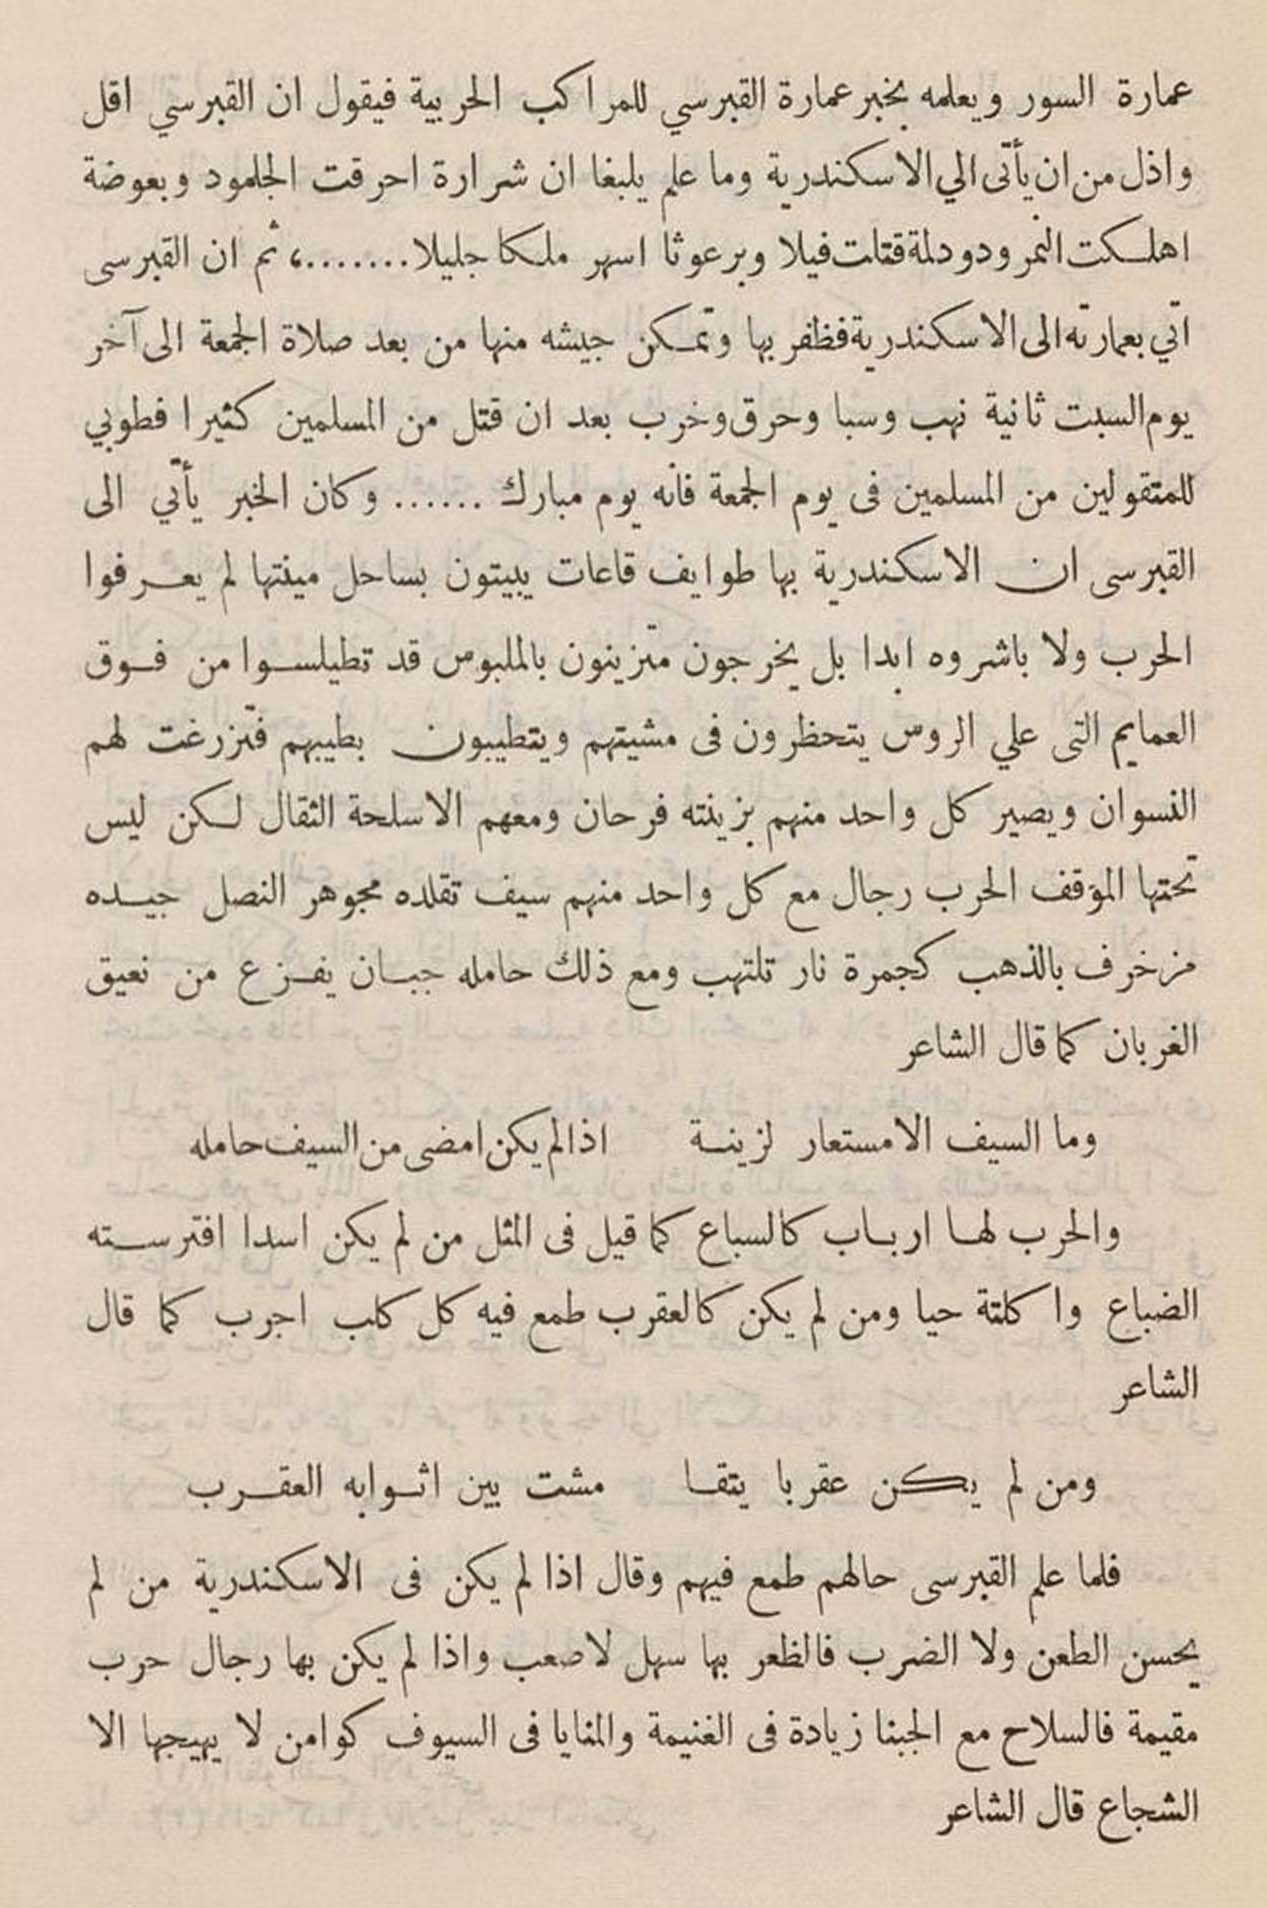 عمارة السور ويعلمه بخبر عمارة القبرسي للمراكب الحربية فيقول ان القبرسي اقل
واذل من ان يأتى الي الاسكندرية وما علم يلبغا ان شرارة احرقت الجلمود وبعوضة
اهلكت النمرود ودلمة قتلت فيلا وبرعوثا اسهر ملكا جليلا........، ثم ان القبرسى
اتي بعمارته الى الاسكندرية فظفر بها وتمكن جيشه منها من بعد صلاة الجمعة الى آخر
يوم السبت ثانية نهب وسبا وحرق وخرب بعد ان قتل من المسلمين كثيرا فطوبي
للمتقولين من المسلمين فى يوم الجمعة فانه يوم مبارك ...... وكان الخبر يأتي الى
القبرسى ان الاسكندرية بها طوايف قاعات يبيتون بساحل مينتها لم يعرفوا
الحرب ولا باشروه ابدا بل يخرجون متزينون بالملبوس قد تطيلسوا من فوق
العمايم التى علي الروس يتحظرون فى مشيتهم ويتطيبون بطيبهم فتزرغت لهم
النسوان ويصير كل واحد منهم بزينته فرحان ومعهم الاسلحة الثقال لكن ليس
تحتها المؤقف الحرب رجال مع كل واحد منهم سيف تقلده مجوهر النصل جيده
مزخرف بالذهب كجمرة نار تلتهب ومع ذلك حامله جبان يفزع من نعيق
الغربان كما قال الشاعر
وما السيف الا مستعار لزينة اذا لم يكن امضى من السيف حامله
والحرب لها ارباب كالسباع كما قيل فى المثل من لم يكن اسدا افترسته
الضباع واكلتة حيا ومن لم يكن كالعقرب طمع فيه كل كلب اجرب كما قال
الشاعر
ومن لم يكن عقربا يتقا مشت بين اثوابه العقرب
فلما علم القبرسى حالهم طمع فيهم وقال اذا لم يكن فى الاسكندرية من لم
يحسن الطعن ولا الضرب فالظعر بها سهل لا صعب واذا لم يكن بها رجال حرب
مقيمة فالسلاح مع الجبنا زيادة فى الغنيمة والمنايا فى السيوف كوامن لا يهيجها الا
الشجاع قال الشاعر